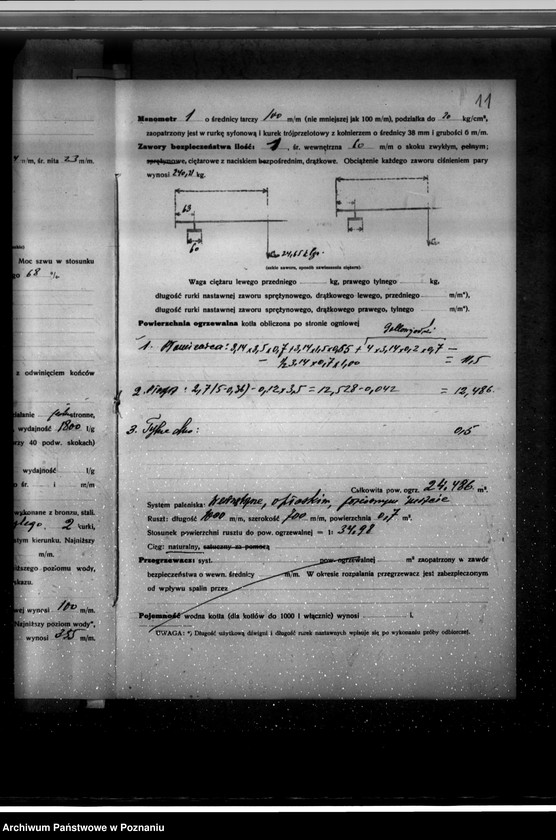 11
Manometr 1 o średnicy tarczy 100 m/m (nie mniejszej jak 100 m/m), podziałka do 20 kg/cm²,
zaopatrzony jest w rurkę syfonową i kurek trójprzelotowy z kołnierzem o średnicy 38 mm i grubości 6 m/m.
Zawory bezpieczeństwa ilość: 1, śr. wewnętrzna 60 m/m o skoku zwykłym, pełnym;
sprężynowe, ciężarowe z naciskiem bezpośrednim, drążkowe. Obciążenie każdego zaworu ciśnieniem pary
wynosi kg.
63
60
(szkic zaworu, sposób zawieszenia ciężaru)
Waga ciężaru lewego przedniego kg, prawego tylnego kg,
długość rurki nastawnej zaworu sprężynowego, drążkowego lewego, przedniego m/m*),
długość rurki nastawnej zaworu sprężynowego, drążkowego prawego, tylnego m/m*).
Powierzchnia ogrzewalna kotła obliczona po stronie ogniowej
1. 3,14 x 2,5 x 0,7 + 3,14 x 1,5 x 0,65 + 4 x 3,14 x 0,2 x 0,7 —
— ½ 3.14 x 0.7 x 1,00 = 11,5
2. 2,7(5-0,36) - 0,12 x 3,5 = 12,528 - 0,042 = 12,486
3. 0,5
Całkowita pow. ogrz. 24,486 m².
System paleniska: wewnętrzne,
Ruszt: długość 1000 m/m, szerokość 700 m/m, powierzchnia 0,7 m².
Stosunek powierzchni rusztu do pow. ogrzewalnej = 1: 34,98
Ciąg: naturalny, sztuczny za pomocą
Przegrzewacz: syst. pow. ogrzewalnej m² zaopatrzony w zawór
bezpieczeństwa o wewn. średnicy m/m. W okresie rozpalania przegrzewacz jest zabezpieczonym
od wpływu spalin przez
Pojemność wodna kotła (dla kotłów do 1000 l włącznie) wynosi l.
UWAGA: *) Długość użytkową dźwigni i długość rurek nastawnych wpisuje się po wykonaniu próby odbiorczej.
m/m, śr. nita 23 m/m.
Moc szwu w stosunku
68 %
z odwinięciem końców
stronne,
wydajność 1800 l/g
przy 40 podw. skokach)
wydajność l/g
o śr. i m/m
wykonane z bronzu, stali.
2 kurki,
kierunku. Najniższy
m/m.
poziomu wody,
wynosi 100 m/m.
Najniższy poziom wody",
wynosi m/m.
Archiwum Państwowe w Poznaniu